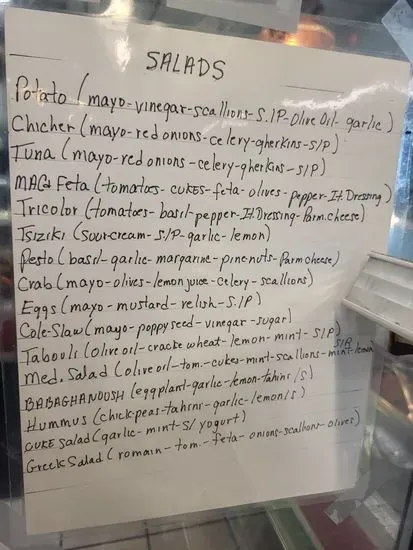 SALADS
Potato (mayo-vinegar-scallions-S.1P-Olive Oil-garlic)
Chicher (mayo-red onions-celery-gherkins-S/P)
Tuna (mayo-red onions-celery-gherkins-S/P)
MAC& Feta (tomatoes-cukes-feta-olives-pepper-It.Dressing)
Tricolor (tomatoes-basil-pepper-It.Dressing-Parm.cheese)
Tsiziki (sourcream-S/P-garlic-lemon)
Pesto (basil-garlic-margarine-pinenuts-Parmcheese)
Crab (mayo-olives-lemon juice-celery-scallions)
Eggs (mayo-mustard-relish-S.1P)
Cole-Slaw (mayo-poppy seed-vinegar-sugar)
Tabouli (olive oil-cracke wheat-lemon-mint-S/P)
Med. Salad (olive oil-tom.-cukes-mint-scallions-mint-lemon S/P
BABAGHANOUSH (eggplant-garlic-lemon-tahini/S)
Hummus (chickpeas-tahini-garlic-lemon/S)
CUKE Salad (garlic-mint-S/yogurt)
Greek Salad (romain-tom.-feta-onions-scallions-olives)